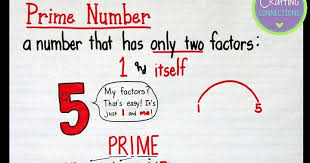 Crafting
CONNECTIONS
Prime Number
a number that has only two factors:
1 & itself
5
My factors?
That's easy! It's
just 1 and me!
1 5
PRIME